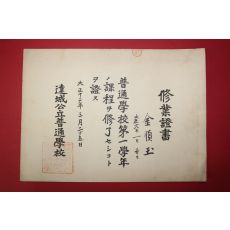 修業證書
金順玉
普通學校第一學年
ノ課程ヲ修了セシコト
ヲ證ス
大正十三年三月二十五日
達城公立普通學校